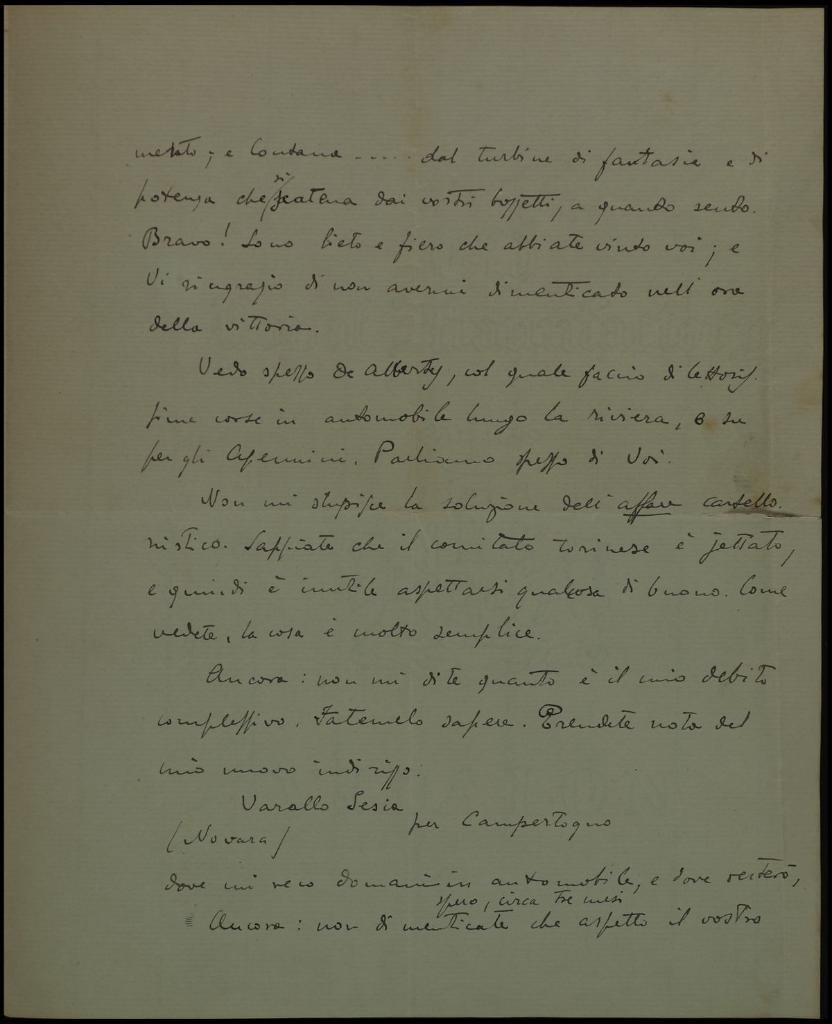 e lontana ..... dal turbine di fantasia e di
potenza che si scatena dai vostri bozzetti, a quando sento.
Bravo! Sono lieto e fiero che abbiate vinto voi; e
Vi ringrazio di non avermi dimenticato nell'ora
della vittoria.
Vedo spesso De Albertis, col quale faccio dilettosis-
sime corse in automobile lungo la riviera, e su
per gli Apennini. Parliamo spesso di Voi.
Non mi stupisce la soluzione dell'affare cartello-
nistico. Sappiate che il comitato torinese è jettato,
e quindi è inutile aspettarsi qualcosa di buono. Come
vedete, la cosa è molto semplice.
Ancora: non mi dite quanto è il mio debito
complessivo. Fatemelo sapere. Prendete nota del
mio nuovo indirizzo:
Varallo Sesia
per Campertogno
(Novara)
dove mi reco domani in automobile, e dove resterò,
spero, circa tre mesi
Ancora: non dimenticate che aspetto il vostro